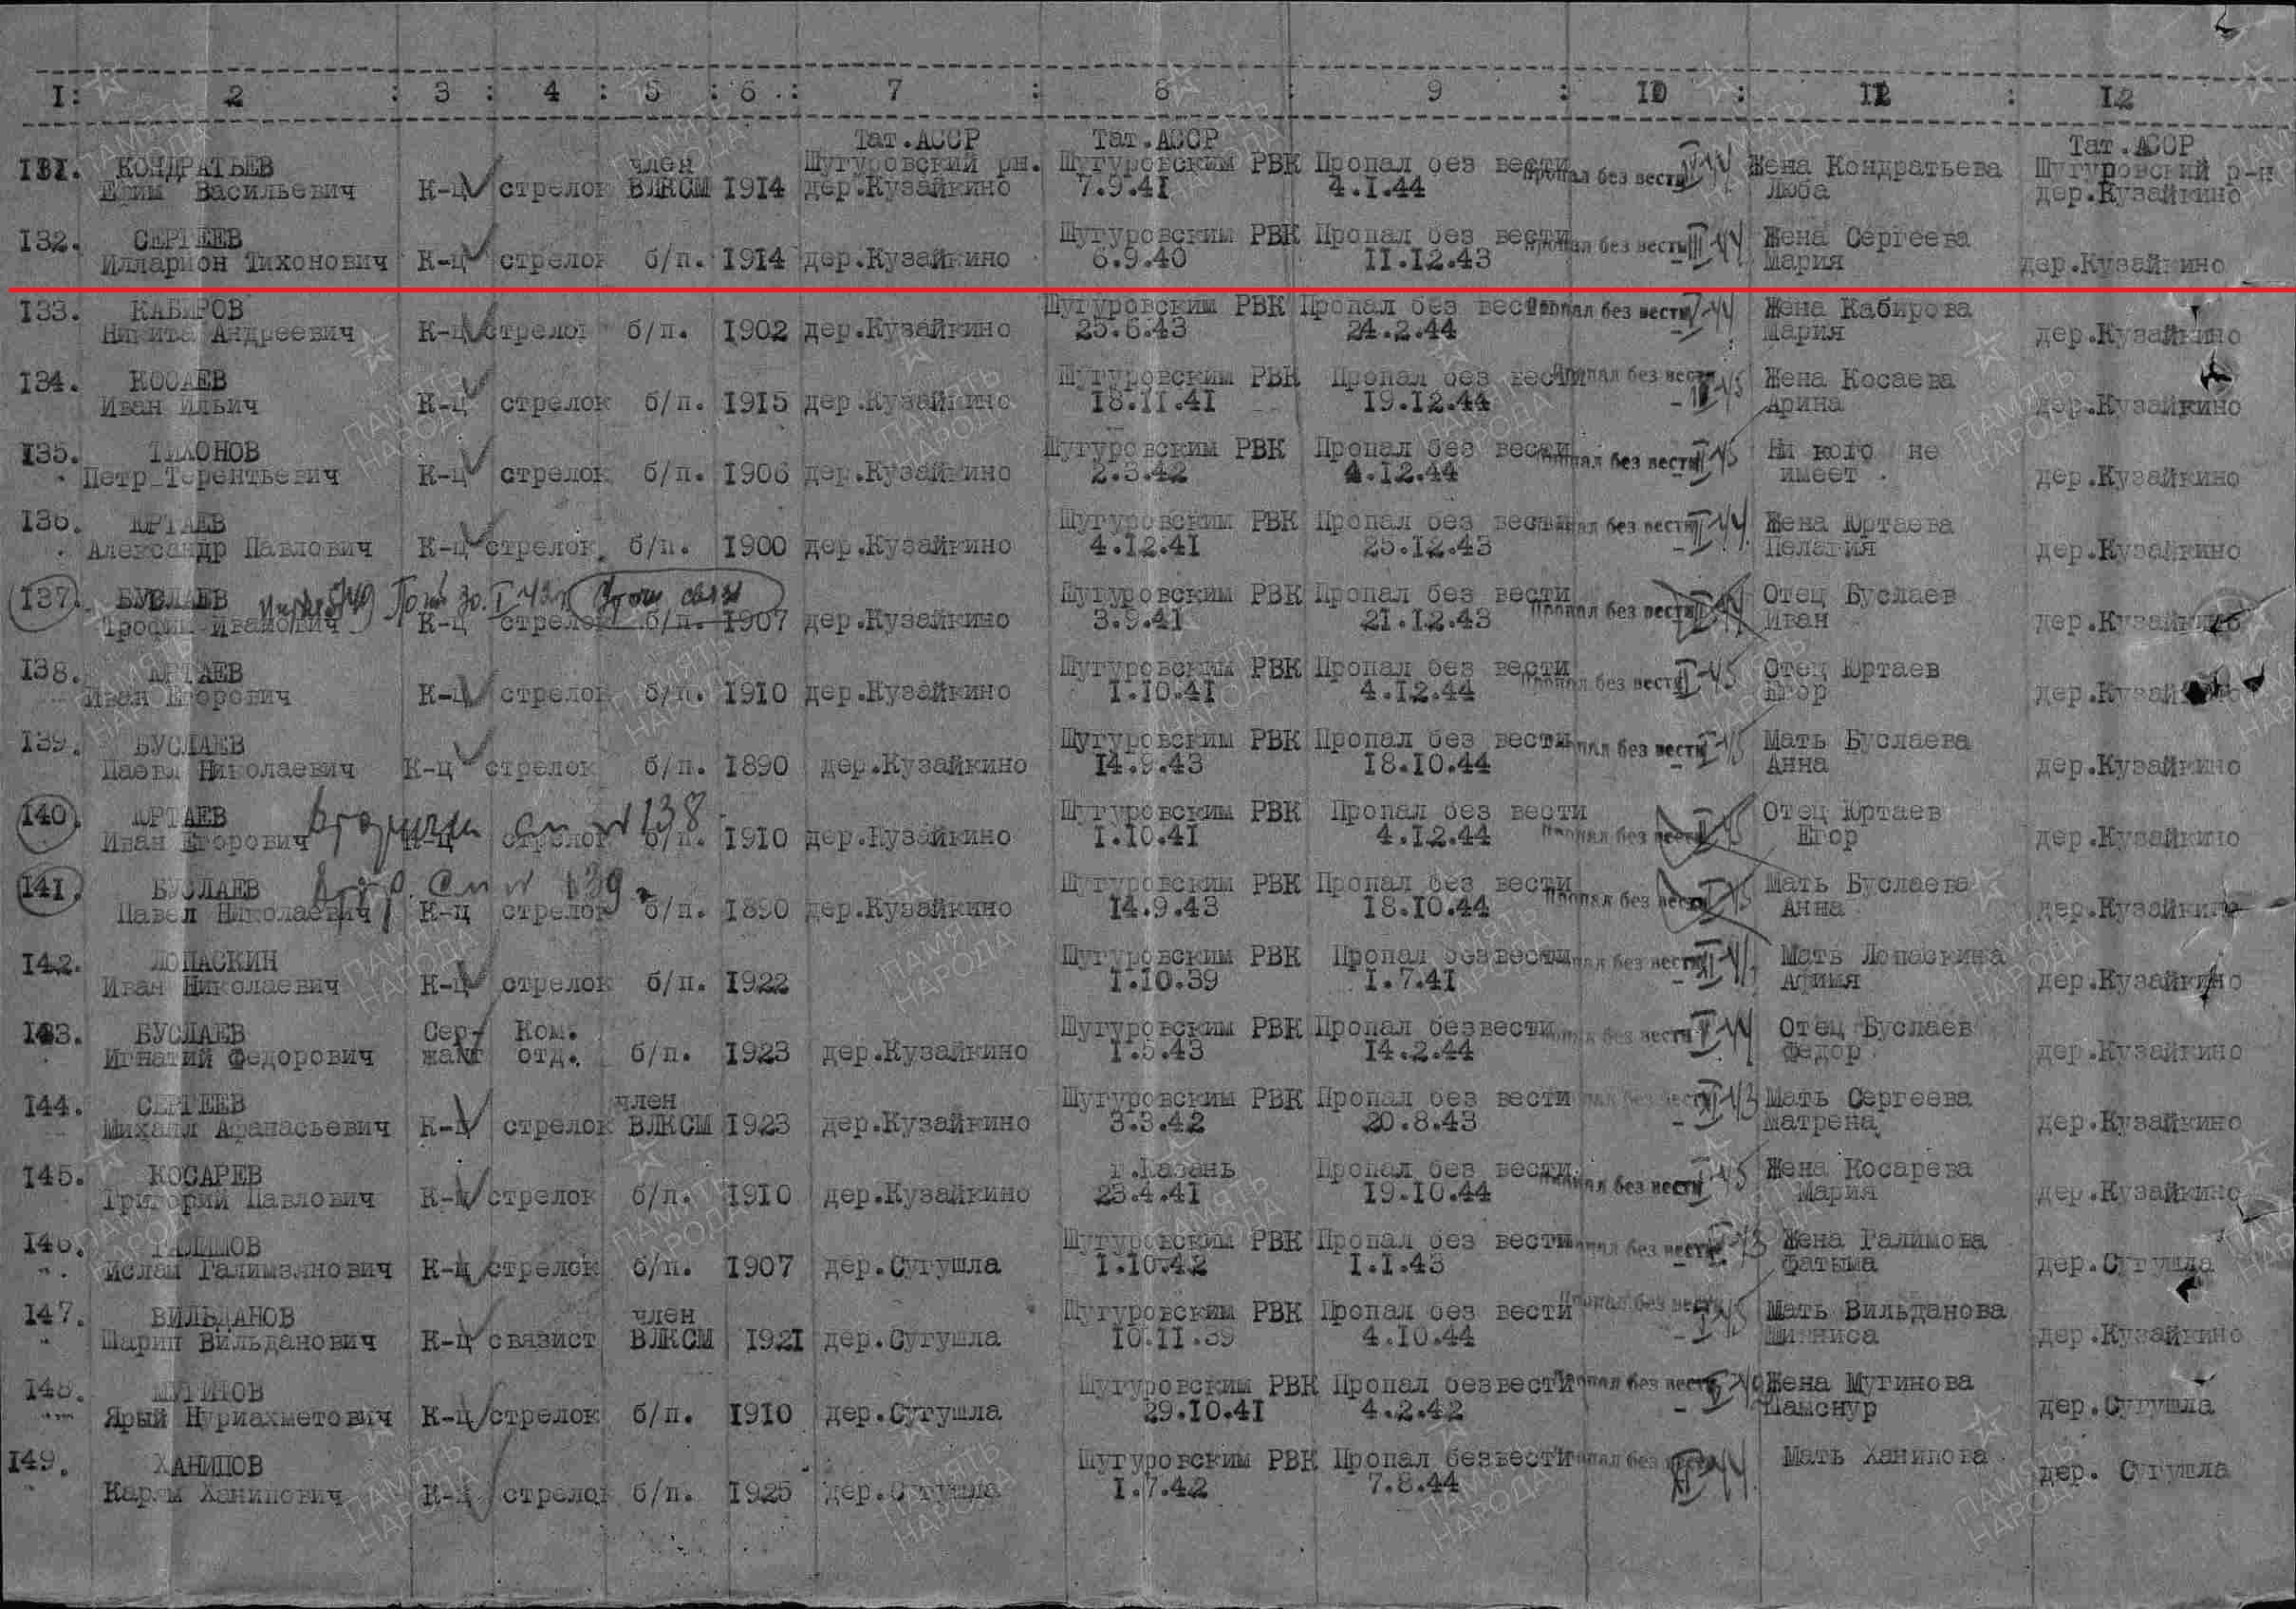 I: 2 : 3 : 4 : 5 : 6 : 7 : 8 : 9 : 10 : 11 : 12
Тат.АССР Тат.АССР Тат.АССР
131. КОНДРАТЬЕВ член Шугуровский рн. Шугуровским РВК Пропал без вести Пропал без вести Жена Кондратьева Шугуровский р-н
Ефим Васильевич К-ц стрелок ВЛКСМ 1914 дер.Кузайкино 7.9.41 4.1.44 Люба дер.Кузайкино
132. СЕРГЕЕВ Шугуровским РВК Пропал без вести Пропал без вести Жена Сергеева
Илларион Тихонович К-ц стрелок б/п. 1914 дер.Кузайкино 6.9.40 11.12.43 Мария дер.Кузайкино
133. КАБИРОВ Шугуровским РВК Пропал без вести Пропал без вести Жена Кабирова
Никита Андреевич К-ц стрелок б/п. 1902 дер.Кузайкино 25.6.43 24.2.44 Мария дер.Кузайкино
134. КОСАЕВ Шугуровским РВК Пропал без вести Пропал без вести Жена Косаева
Иван Ильич К-ц стрелок б/п. 1915 дер.Кузайкино 18.11.41 19.12.44 Арина дер.Кузайкино
135. ТИХОНОВ Шугуровским РВК Пропал без вести Пропал без вести Ни кого не
Петр Терентьевич К-ц стрелок б/п. 1906 дер.Кузайкино 2.3.42 4.12.44 имеет . дер.Кузайкино
136. ЮРТАЕВ Шугуровским РВК Пропал без вести Пропал без вести Жена Юртаева
Александр Павлович К-ц стрелок. б/п. 1900 дер.Кузайкино 4.12.41 25.12.43 Пелагия дер.Кузайкино
137. БУСЛАЕВ Шугуровским РВК Пропал без вести Пропал без вести Отец Буслаев
Трофим Иванович К-ц стрелок б/п. 1907 дер.Кузайкино 3.9.41 21.12.43 Иван дер.Кузайкино
138. ЮРТАЕВ Шугуровским РВК Пропал без вести Пропал без вести Отец Юртаев
Иван Егорович К-ц стрелок б/п. 1910 дер.Кузайкино 1.10.41 4.12.44 Егор дер.Кузайкино
139. БУСЛАЕВ Шугуровским РВК Пропал без вести Пропал без вести Мать Буслаева
Паевл Николаевич К-ц стрелок б/п. 1890 дер.Кузайкино 14.9.43 18.10.44 Анна дер.Кузайкино
140. ЮРТАЕВ см № 138 Шугуровским РВК Пропал без вести Пропал без вести Отец Юртаев
Иван Егорович К-ц стрелок б/п. 1910 дер.Кузайкино 1.10.41 4.12.44 Егор дер.Кузайкино
141. БУСЛАЕВ см № 139 Шугуровским РВК Пропал без вести Пропал без вести Мать Буслаева
Павел Николаевич К-ц стрелок б/п. 1890 дер.Кузайкино 14.9.43 18.10.44 Анна дер.Кузайкино
142. ЛОПАСКИН Шугуровским РВК Пропал безвести Пропал без вести Мать Лопаскина
Иван Николаевич К-ц стрелок б/п. 1922 1.10.39 1.7.41 Афимя дер.Кузайкино
143. БУСЛАЕВ Сер- Ком. Шугуровским РВК Пропал безвести Пропал без вести Отец Буслаев
Игнатий Федорович жант отд. б/п. 1923 дер.Кузайкино 1.5.43 14.2.44 Федор дер.Кузайкино
144. СЕРГЕЕВ член Шугуровским РВК Пропал без вести Пропал без вести Мать Сергеева
Михаил Афанасьевич К-ц стрелок ВЛКСМ 1923 дер.Кузайкино 3.3.42 20.8.43 Матрена дер.Кузайкино
145. КОСАРЕВ г.Казань Пропал без вести Пропал без вести Жена Косарева
Григорий Павлович К-ц стрелок б/п. 1910 дер.Кузайкино 23.4.41 19.10.44 Мария дер.Кузайкино
146. ГАЛИМОВ Шугуровским РВК Пропал без вести Пропал без вести Жена Галимова
Ислам Галимзянович К-ц стрелок б/п. 1907 дер.Сугушла 1.10.42 1.1.43 Фатыма дер.Сугушла
147. ВИЛЬДАНОВ член Шугуровским РВК Пропал без вести Пропал без вести Мать Вильданова
Шарип Вильданович К-ц связист ВЛКСМ 1921 дер.Сугушла 10.11.39 4.10.44 дер.Кузайкино
148. МУГИНОВ Шугуровским РВК Пропал безвести Пропал без вести Жена Мугинова
Ярый Нуриахметович К-ц стрелок б/п. 1910 дер.Сугушла 29.10.41 4.2.42 Шамснур дер.Сугушла
149. ХАНИПОВ Шугуровским РВК Пропал безвести Пропал без вести Мать Ханипова
Карам Ханипович К-ц стрелок б/п. 1925 дер.Сугушла 1.7.42 7.8.44 дер. Сугушла
ПАМЯТЬ НАРОДА